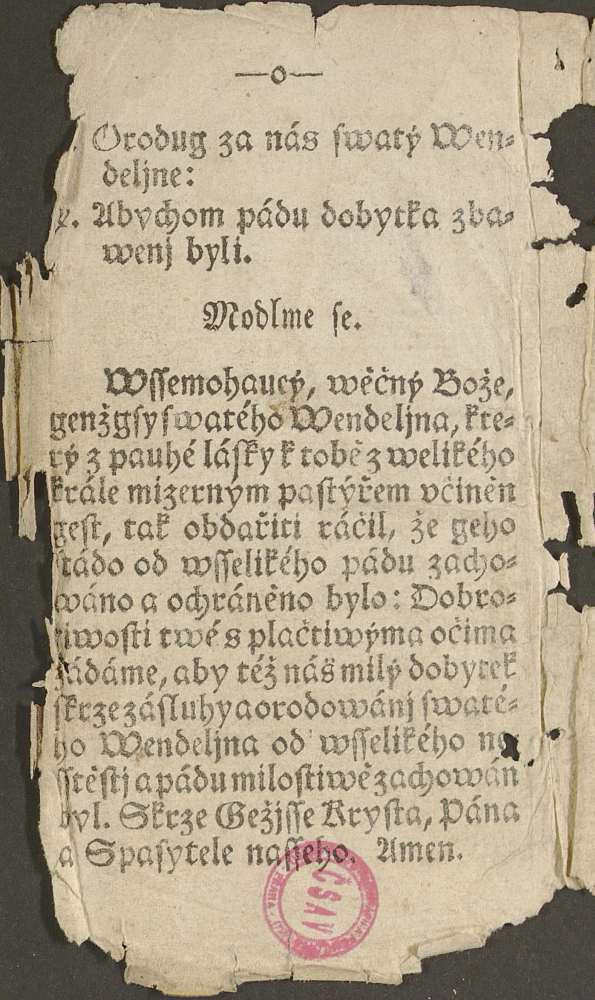 —o—
Orodug za nás swatý Wen-
deljne:
Abychom pádu dobytka zba-
wenj byli.
Modlme se.
Wssemohaucý, wěčný Bože,
genž gsy swatého Wendeljna, kte-
rý z pauhé lásky k tobě z welikého
krále mizerným pastýřem včiněn
gest, tak obdařiti ráčil, že geho
stádo od wsselikého pádu zacho-
wáno a ochráněno bylo: Dobro-
tiwosti twé s plačtiwýma očima
žádáme, aby též náš milý dobytek
skrze zásluhy a orodowánj swaté-
ho Wendeljna od wsselikého ne-
sstěstj a pádu milostiwě zachowán
byl. Skrze Gežjsse Krysta, Pána
a Spasytele nasseho. Amen.
ČSAV